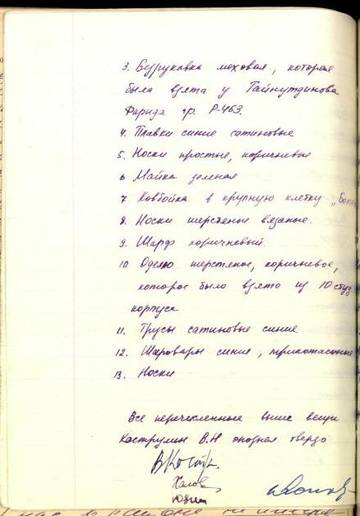 3. Безрукавка меховая, которая
была взята у Гайнутдинова
Фарида гр. Р-463.
4. Плавки синие сатиновые
5. Носки простые, коричневые
6 Майка зеленая
7 Ковбойка в крупную клетку
8. Носки шерстяные вязаные.
9. Шарф коричневый
10 Одеяло шерстяное, коричневое,
которое было взято из 10 студ
корпуса
11. Трусы сатиновые синие
12. Шаровары синие, трикотажные
13. Носки
Все перечисленные выше вещи
Кострулин В.Н опознал твердо
Юдин